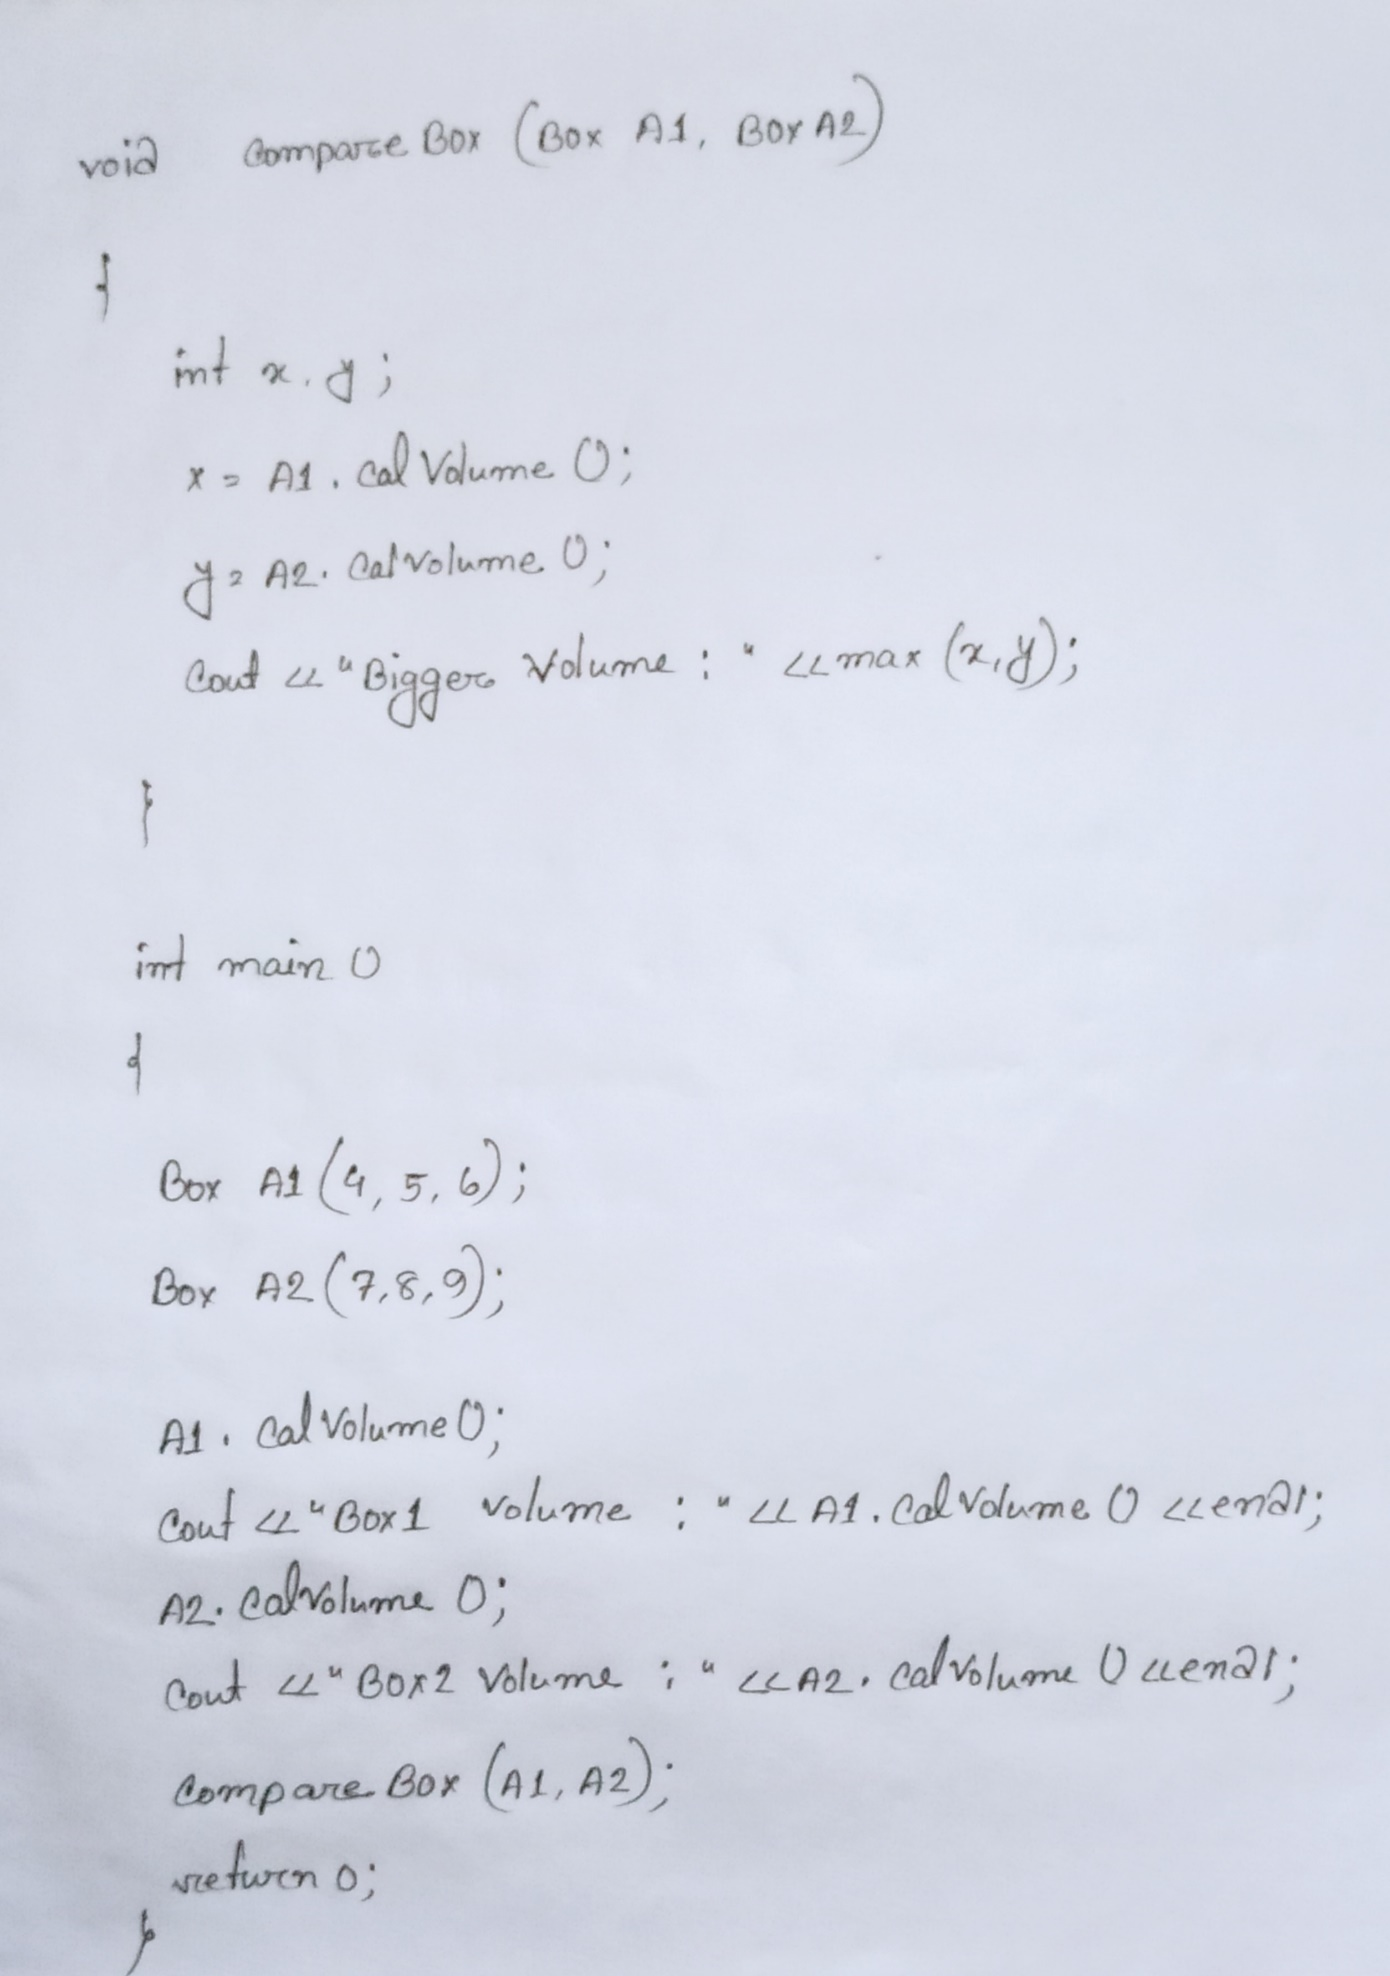 void compare Box (Box A1, Box A2)
{
int x, y;
x = A1. cal Volume ();
y = A2. cal volume ();
Cout << "Bigger Volume : " << max (x,y);
}
int main ()
{
Box A1 (4, 5, 6);
Box A2 (7,8,9);
A1. cal Volume ();
Cout << "Box1 volume : " << A1. cal volume () << endl;
A2. cal volume ();
Cout << "Box2 Volume : " << A2. cal volume () << endl;
compare Box (A1, A2);
return 0;
}